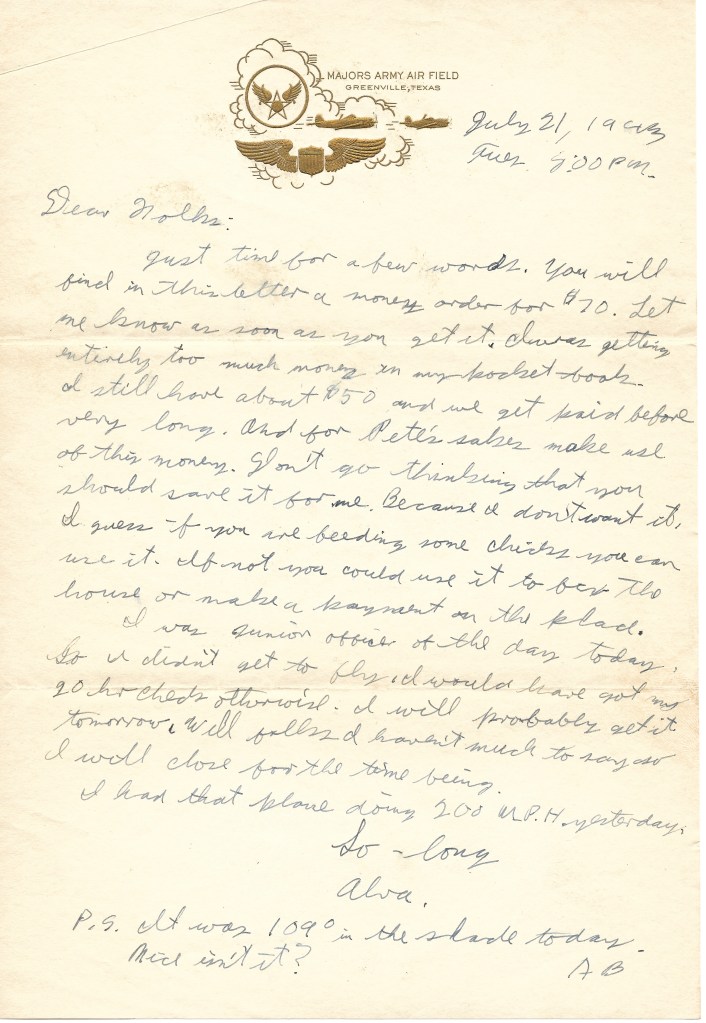 MAJORS ARMY AIR FIELD
GREENVILLE, TEXAS
July 21, 1943
Tues. 8:00 P.M.
Dear Folks:
Just time for a few words. You will
find in this letter a money order for $70. Let
me know as soon as you get it. I was getting
entirely too much money in my pocket-book.
I still have about $50 and we get paid before
very long. And for Pete's sakes make use
of this money. Don't go thinking that you
should save it for me. Because I don't want it.
I guess if you are feeding some chicks you can
use it. If not you could use it to fix the
house or make a payment on the place.
I was junior officer of the day today.
So I didn't get to fly. I would have got my
20 hr check otherwise. I will probably get it
tomorrow. Well folks I haven't much to say so
I will close for the time being.
I had that plane doing 200 M.P.H. yesterday.
So-long
Alva.
P.S. It was 109° in the shade today.
Nice isn't it?
AB